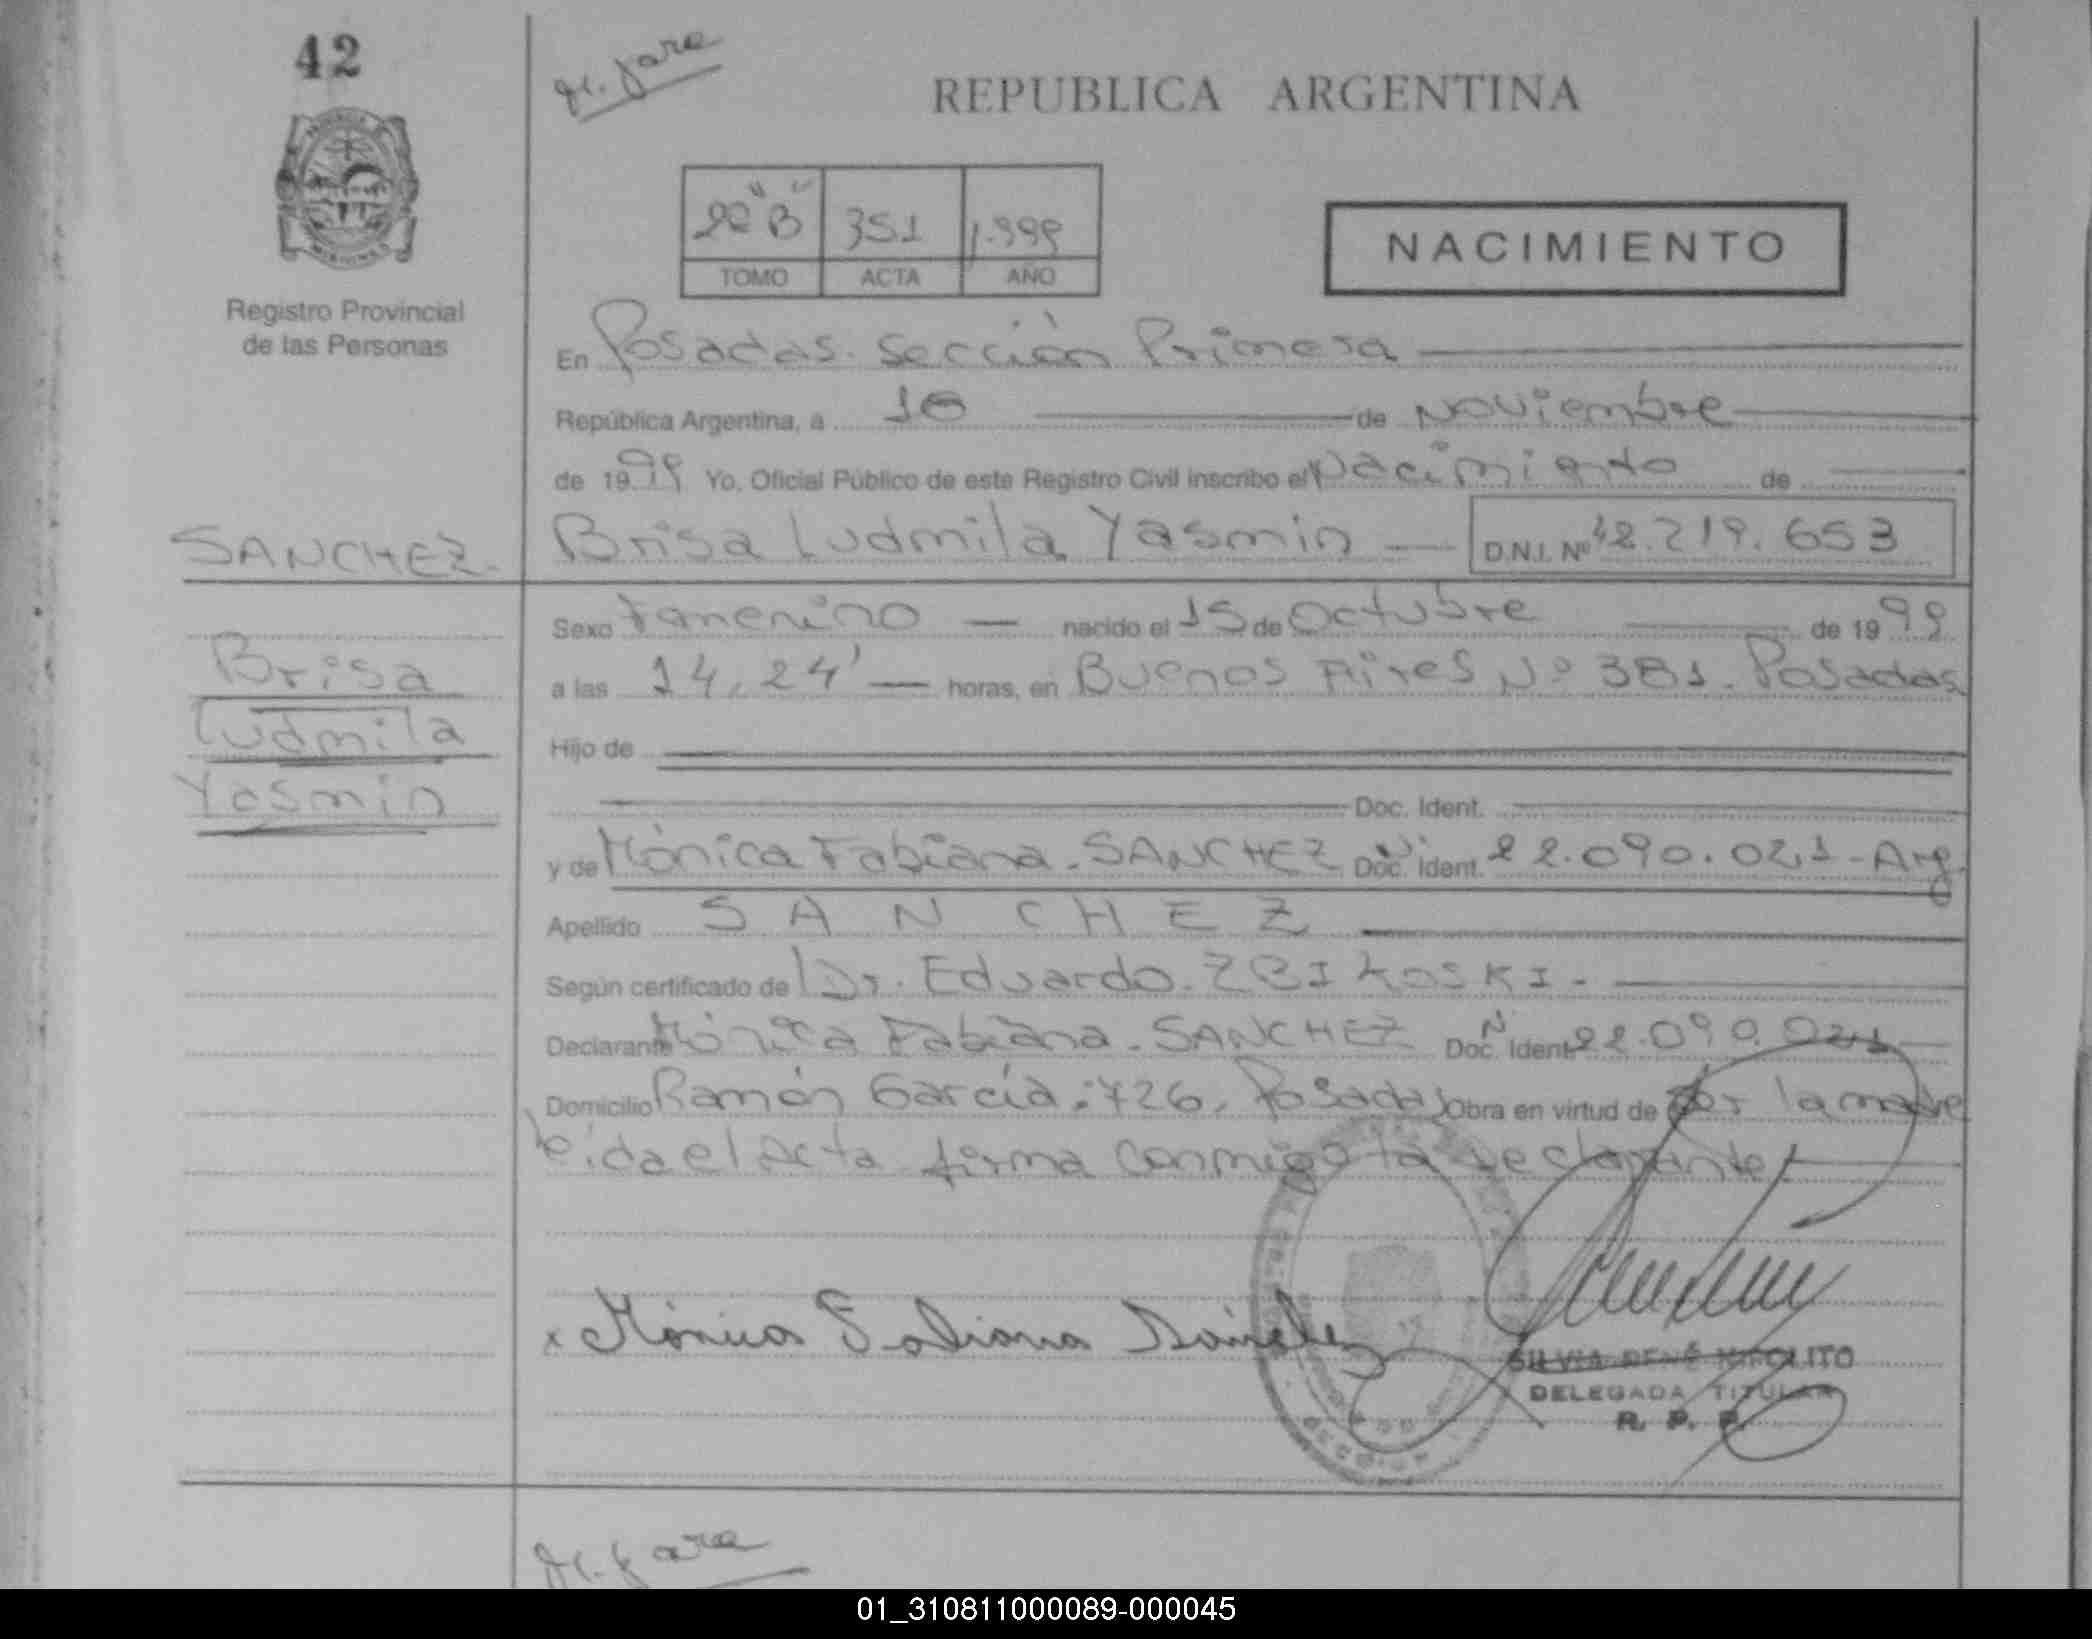 42
REPUBLICA ARGENTINA
2º "B" 351 1.999
TOMO ACTA AÑO
NACIMIENTO
Registro Provincial
de las Personas
En Posadas. Sección Primera
República Argentina, a 16 de Noviembre
de 1999 Yo, Oficial Público de este Registro Civil inscribo el Nacimiento de
SANCHEZ. Brisa Ludmila Yasmin D.N.I. Nº 42.219.653
Sexo Femenino nacido el 15 de Octubre de 1999
Brisa
a las 14,24' horas, en Buenos Aires Nº 381. Posadas
Ludmila
Hijo de
Yasmin
Doc. Ident.
y de Mónica Fabiana. SANCHEZ Doc. Ident. Nº 22.090.021-Arg
Apellido SANCHEZ
Según certificado de Dr. Eduardo. ZBIKOSKI.
Declarante Mónica Fabiana. SANCHEZ Doc. Ident. Nº 22.090.021
Domicilio Ramón García: 726. Posadas Obra en virtud de ser la madre
leida el acta firma conmigo la declarante
x Mónica Fabiana Sánchez
SILVIA RENÉ HIPOLITO
DELEGADA TITULAR
R. P. P.
01_310811000089-000045